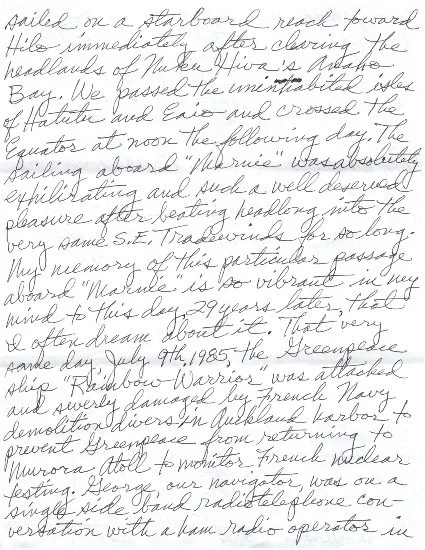 sailed on a starboard reach toward
Hilo immediately after clearing the
headlands of Nuku Hiva's Anaho
Bay. We passed the uninhabited isles
of Hatutu and Eaio and crossed the
Equator at noon the following day. The
sailing aboard "Marnie" was absolutely
exhilirating and such a well deserved
pleasure after beating headlong into the
very same S.E. Tradewinds for so long.
My memory of this particular passage
aboard "Marnie" is so vibrant in my
mind to this day, 29 years later, that
I often dream about it. That very
same day, July 9th, 1985, the Greenpeace
ship "Rainbow Warrior" was attacked
and severly damaged by French Navy
demolition divers in Auckland harbor to
prevent Greenpeace from returning to
Murora Atoll to monitor French nuclear
testing. George, our navigator, was on a
single side band radiotelephone con-
versation with a ham radio operator in